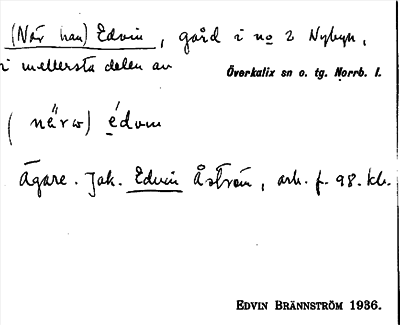 (När han) Edvin, gård i no 2 Nybyn,
i mellersta delen av
Överkalix sn o. tg. Norrb. l.
(närw) édvm
Ägare. Jak. Edvin Åström, arb. f. 98. kb.
EDVIN BRÄNNSTRÖM 1936.